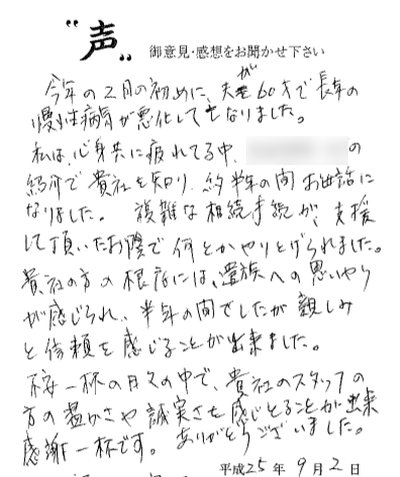 "声" 御意見・感想をお聞かせ下さい
今年の2月の初めに、夫が60才で長年の
慢性病が悪化して亡なりました。
私は、心身共に疲れてる中、の
紹介で貴社を知り、約半年の間お世話に
なりました。 複雑な相続手続が、支援
して頂いたお陰で何とかやりとげられました。
貴社の方の根底には、遺族への思いやり
が感じられ、半年の間でしたが親しみ
と信頼を感じることが出来ました。
一杯の日々の中で、貴社のスタッフの
方の温かさや誠実さを感じとることが出来
感謝一杯です。 ありがとうございました。
平成25年9月2日